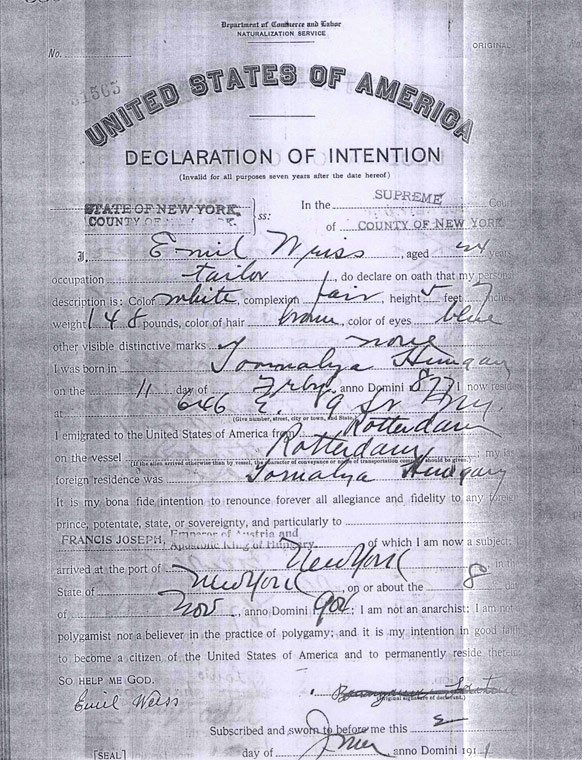 Department of Commerce and Labor
NATURALIZATION SERVICE
No.
ORIGINAL
31563
UNITED STATES OF AMERICA
DECLARATION OF INTENTION
(Invalid for all purposes seven years after the date hereof)
STATE OF NEW YORK,
COUNTY OF
ss:
In the SUPREME Court
of COUNTY OF NEW YORK
I, Emil Weiss, aged years
occupation tailor, do declare on oath that my personal
description is: Color white, complexion fair, height 5 feet 7 inches
weight 148 pounds, color of hair brown, color of eyes blue
other visible distinctive marks none
I was born in Tornalya Hungary
on the 11 day of Feby, anno Domini 1 now reside
at 646 E. 9 St N.Y.
(Give number, street, city or town, and State.)
I emigrated to the United States of America from Rotterdam
on the vessel Rotterdam; my last
(If the alien arrived otherwise than by vessel, the character of conveyance or name of transportation company should be given.)
foreign residence was Tornalya Hungary
It is my bona fide intention to renounce forever all allegiance and fidelity to any foreign
prince, potentate, state, or sovereignty, and particularly to
FRANCIS JOSEPH, Emperor of Austria and Apostolic King of Hungary, of which I am now a subject; I
arrived at the port of New York, in the
State of New York, on or about the 8 day
of Nov, anno Domini 1906; I am not an anarchist; I am not a
polygamist nor a believer in the practice of polygamy; and it is my intention in good faith
to become a citizen of the United States of America and to permanently reside therein:
SO HELP ME GOD.
Emil Weiss
(Original signature of declarant.)
Subscribed and sworn to before me this 2
[SEAL]
day of, anno Domini 191